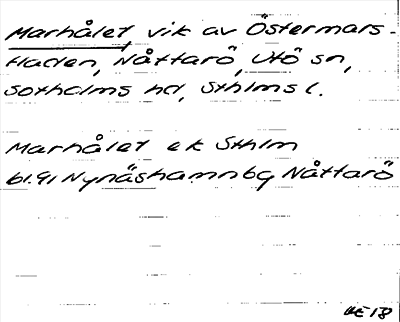 Marhålet, vik av Östermars-
fladen, Nåttarö, Utö sn,
Sotholms hd, Sthlms l.
Marhålet ek Sthlm
bl. 91 Nynäshamn 6g Nåttarö